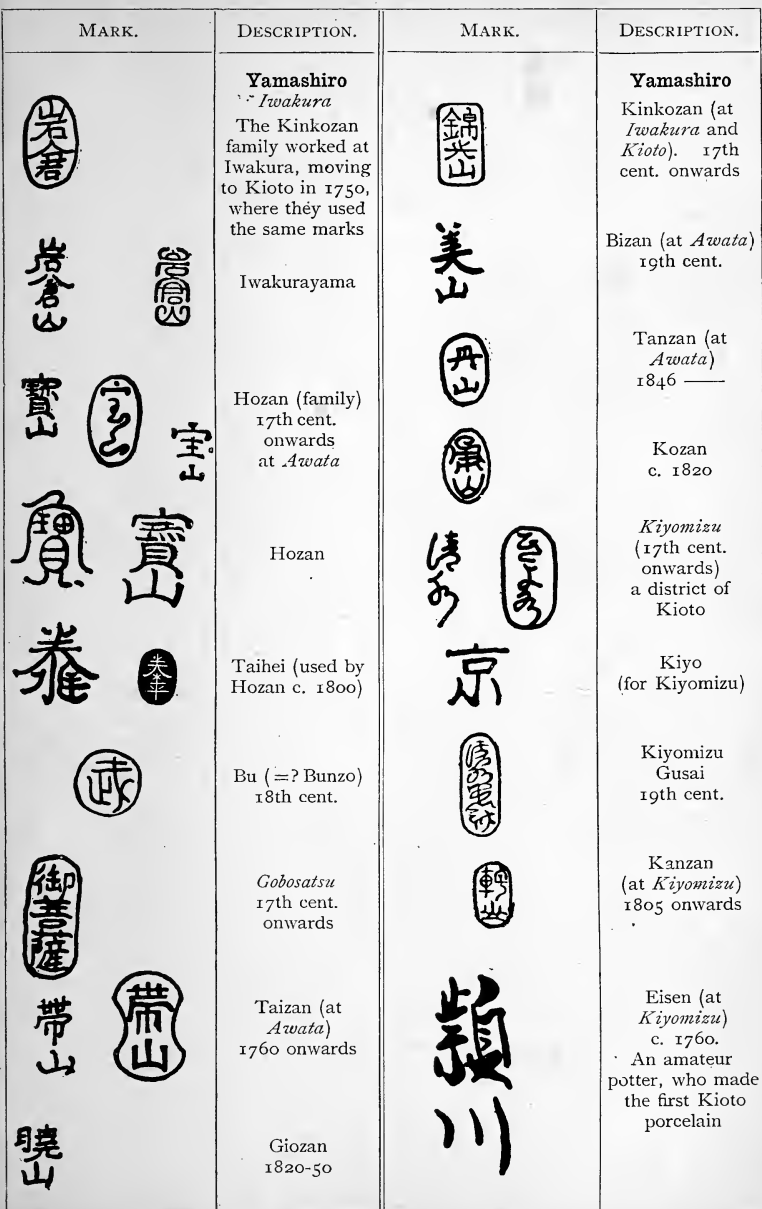 MARK.
DESCRIPTION.
Yamashiro
Iwakura
岩倉
The Kinkozan
family worked at
Iwakura, moving
to Kioto in 1750,
where they used
the same marks
岩倉山 岩倉山
Iwakurayama
寶山 宝山 宝山
Hozan (family)
17th cent.
onwards
at Awata
寶 寶山
Hozan
Taihei (used by
Hozan c. 1800)
武
Bu (=? Bunzo)
18th cent.
御菩薩
Gobosatsu
17th cent.
onwards
帶山 帶山
Taizan (at
Awata)
1760 onwards
曉山
Giozan
1820-50
MARK.
DESCRIPTION.
Yamashiro
錦光山
Kinkozan (at
Iwakura and
Kioto). 17th
cent. onwards
美山
Bizan (at Awata)
19th cent.
丹山
Tanzan (at
Awata)
1846 ——
Kozan
c. 1820
清水 きよ水
Kiyomizu
(17th cent.
onwards)
a district of
Kioto
京
Kiyo
(for Kiyomizu)
清水
Kiyomizu
Gusai
19th cent.
Kanzan
(at Kiyomizu)
1805 onwards
頴川
Eisen (at
Kiyomizu)
c. 1760.
An amateur
potter, who made
the first Kioto
porcelain